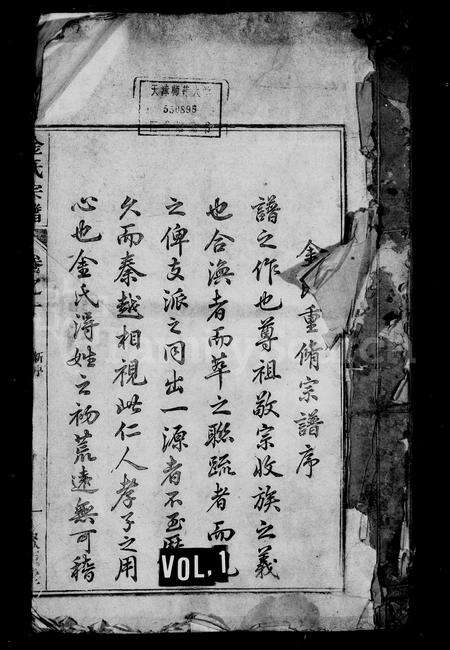 天津師范大
550895
金 重脩宗譜序
譜之作也尊祖敬宗收族之義
也合渙者而萃之聯疏者而
之俾支派之同出一源者不至
久而秦越相視此仁人孝子之用
心也金氏得姓之初荒遠無可稽
氏宗譜
VOL.1